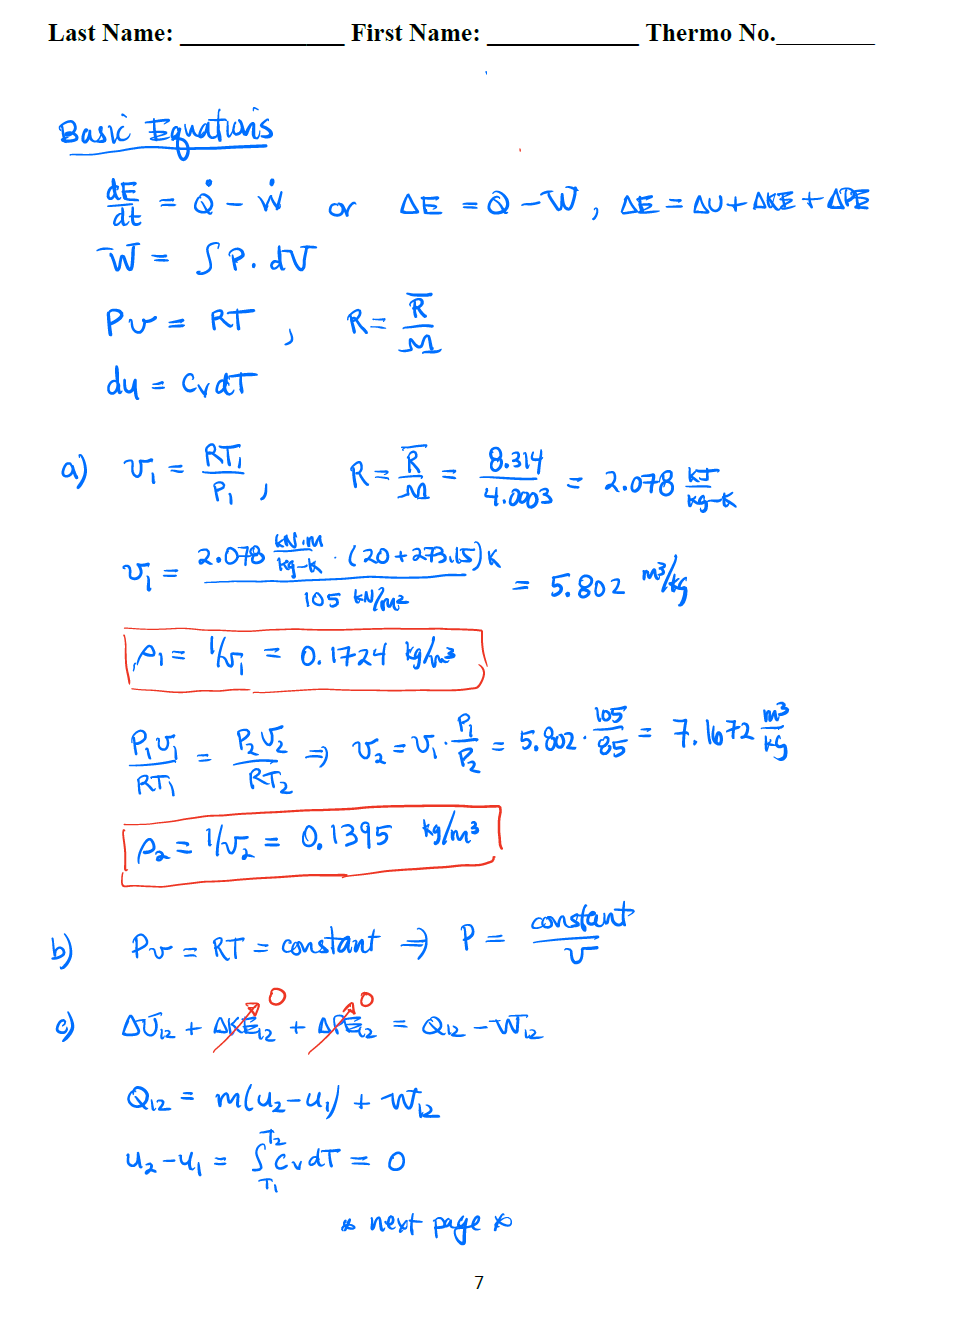 Last Name: _____________ First Name: ____________ Thermo No.________
Basic Equations
dE/dt = Q̇ - Ẇ or ΔE = Q - W, ΔE = ΔU + ΔKE + ΔPE
W = ∫ P. dV
Pv = RT, R = R̅/M
du = Cv dT
a) v₁ = RT₁/P₁, R = R̅/M = 8.314/4.0003 = 2.078 kJ/kg-K
v₁ = 2.078 kN.m/kg-K · (20+273.15) K / 105 kN/m² = 5.802 m³/kg
ρ₁ = 1/v₁ = 0.1724 kg/m³
P₁v₁/RT₁ = P₂v₂/RT₂ ⇒ v₂ = v₁ · P₁/P₂ = 5.802 · 105/85 = 7.1672 m³/kg
ρ₂ = 1/v₂ = 0.1395 kg/m³
b) Pv = RT = constant ⇒ P = constant/v
c) ΔU₁₂ + ΔKE₁₂ 0 + ΔPE₁₂ 0 = Q₁₂ - W₁₂
Q₁₂ = m(u₂-u₁) + W₁₂
u₂-u₁ = ∫T₁T₂ Cv dT = 0
* next page *
7